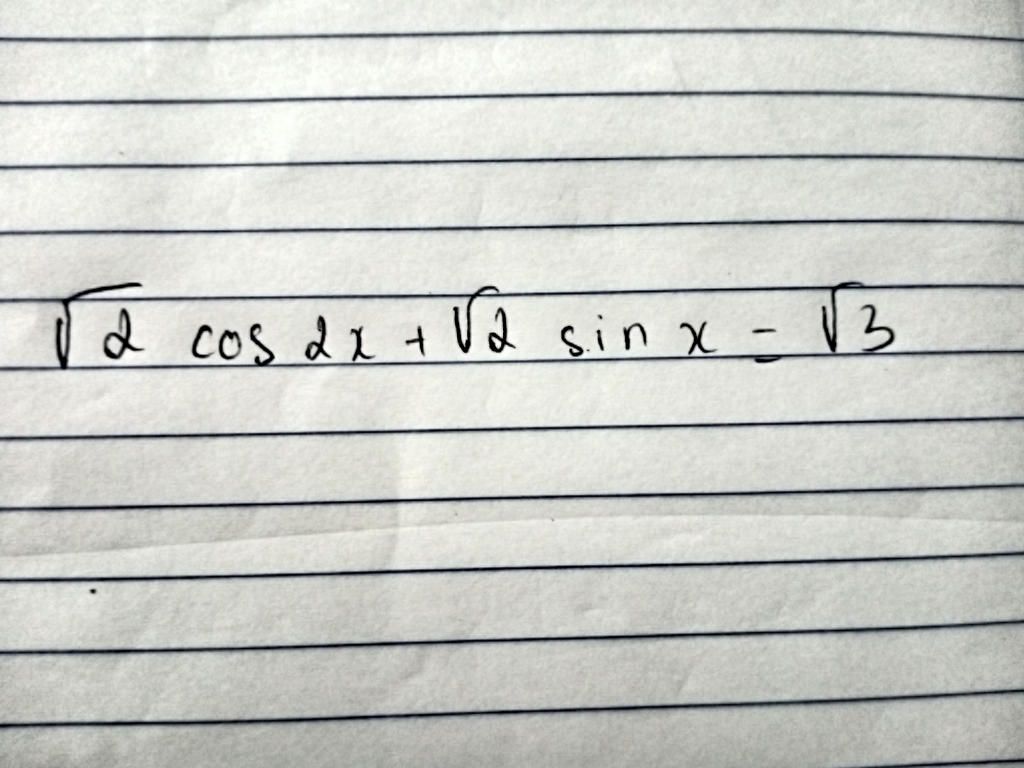 √2 cos 2x + √2 sin x = √3